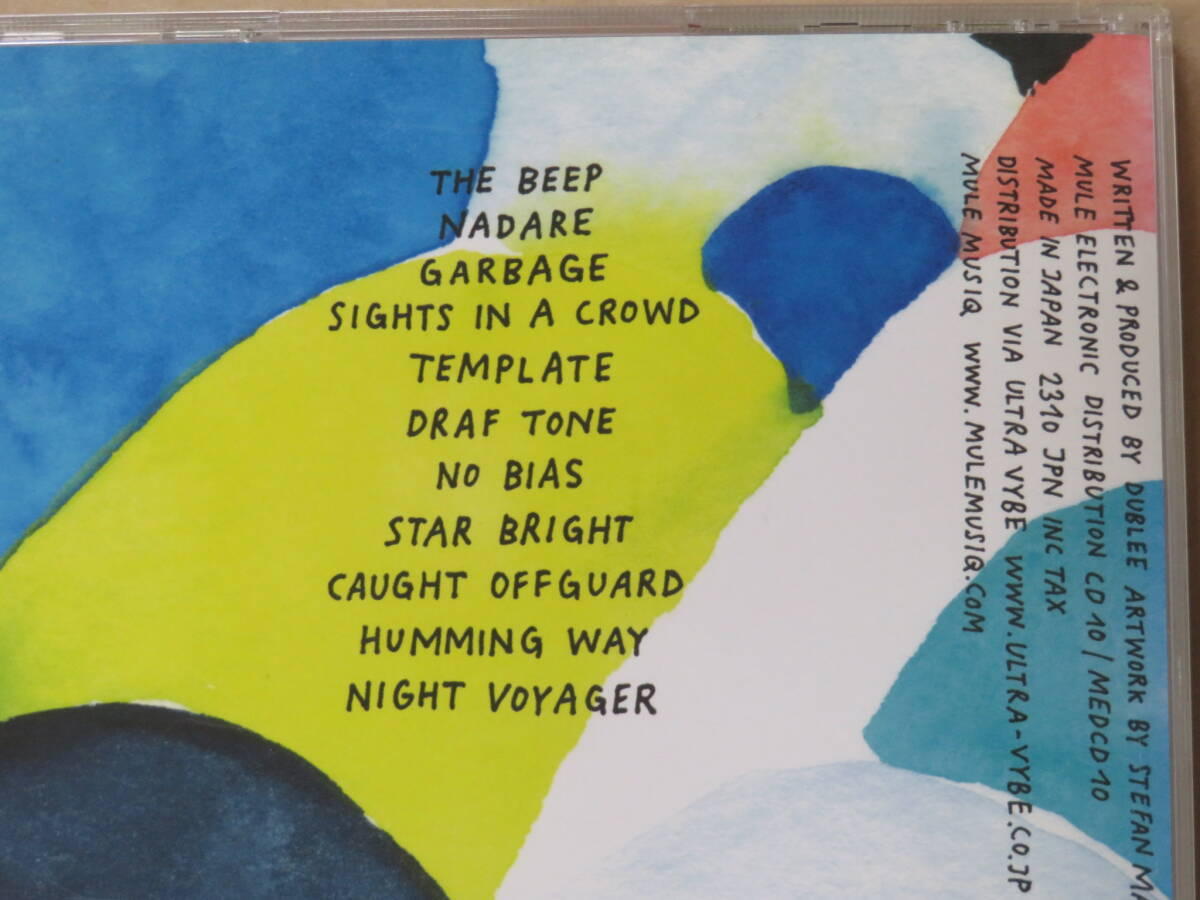 THE BEEP
NADARE
GARBAGE
SIGHTS IN A CROWD
TEMPLATE
DRAF TONE
NO BIAS
STAR BRIGHT
CAUGHT OFFGUARD
HUMMING WAY
NIGHT VOYAGER
WRITTEN & PRODUCED BY DUBLEE ARTWORK BY STEFAN MA
MULE ELECTRONIC DISTRIBUTION CD 10 / MEDCD 10
MADE IN JAPAN 2310 JPN INC TAX
DISTRIBUTION VIA ULTRA VYBE WWW.ULTRA-VYBE.CO.JP
MULE MUSIQ WWW.MULEMUSIQ.COM